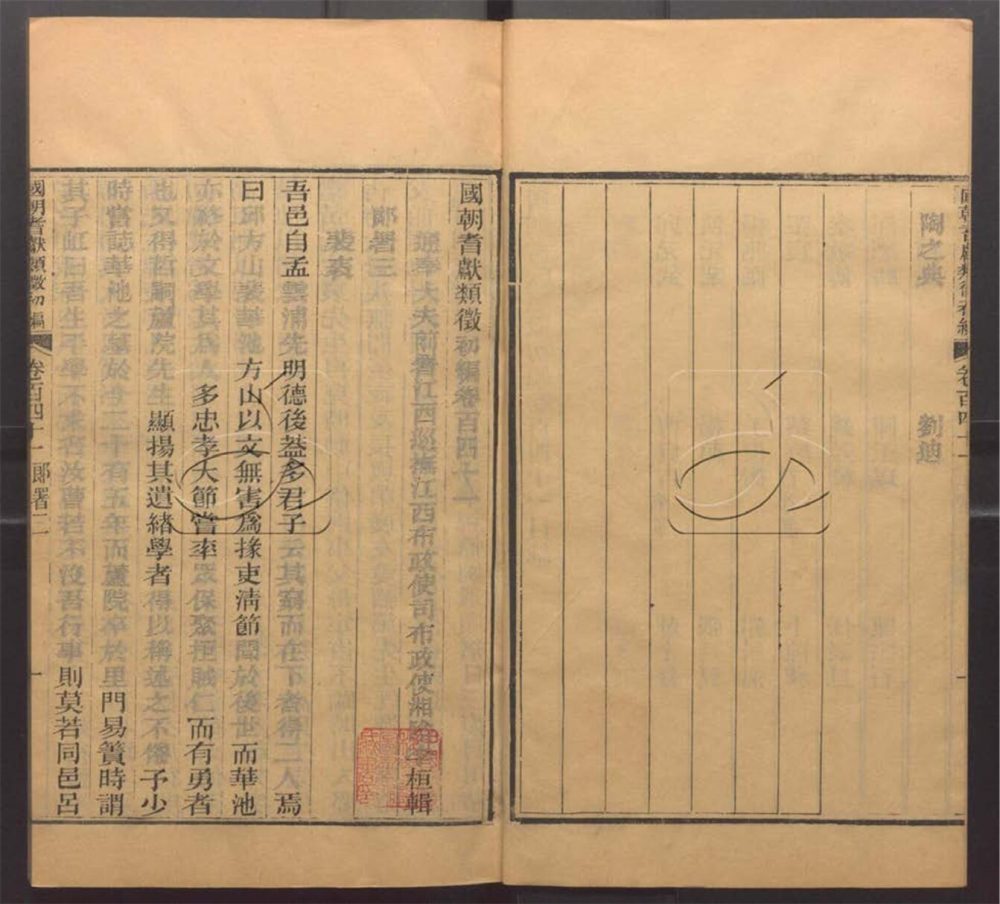 陶之典 劉迪
國朝耆獻類徵初編卷百四十一
通奉大夫前署江西巡撫江西布政使司布政使湘陰李桓輯
郎署三
裴袠
吾邑自孟雲浦先明德後葢多君子云其窮而在下者得二人焉
曰邱方山裴華池方山以文無害爲掾吏淸節聞於後世而華池
亦終於文學其爲人多忠孝大節嘗率眾保聚拒賊仁而有勇者
也又得哲嗣蘆院先生顯揚其遺緖學者得以稱述之不倦予少
時嘗誌華池之墓於士三十有五年而蘆院卒於里門易簀時謂
其子紅曰吾生平學不求名汝曹若不沒吾行事則莫若同邑呂
國朝耆獻類徵初編 卷百四十一 郎署三 一